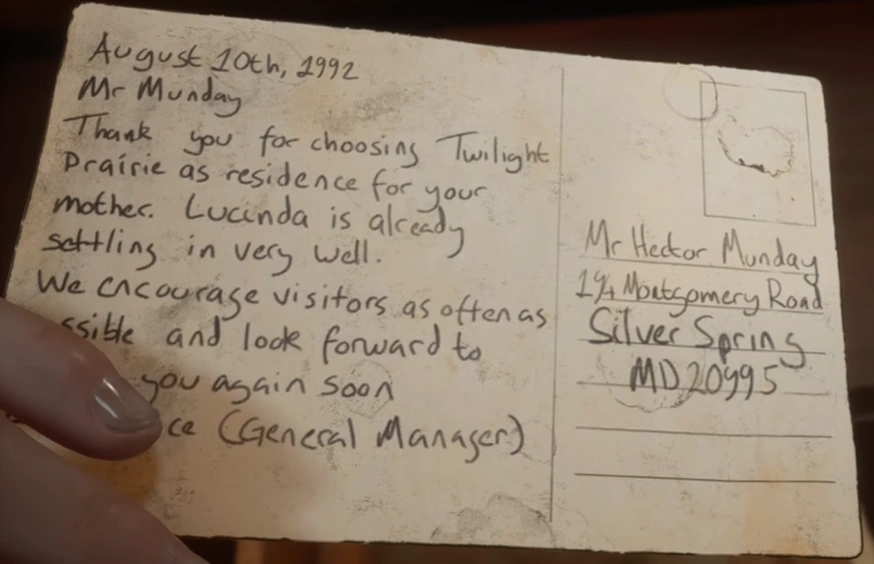 August 10th, 1992
Mr Munday
Thank you for choosing Twilight
Prairie as residence for your
mother. Lucinda is already
settling in very well.
We encourage visitors as often as
ssible and look forward to
you again soon
ce (General Manager)
Mr Hector Munday
Montgomery Road
Silver Spring
MD 20995